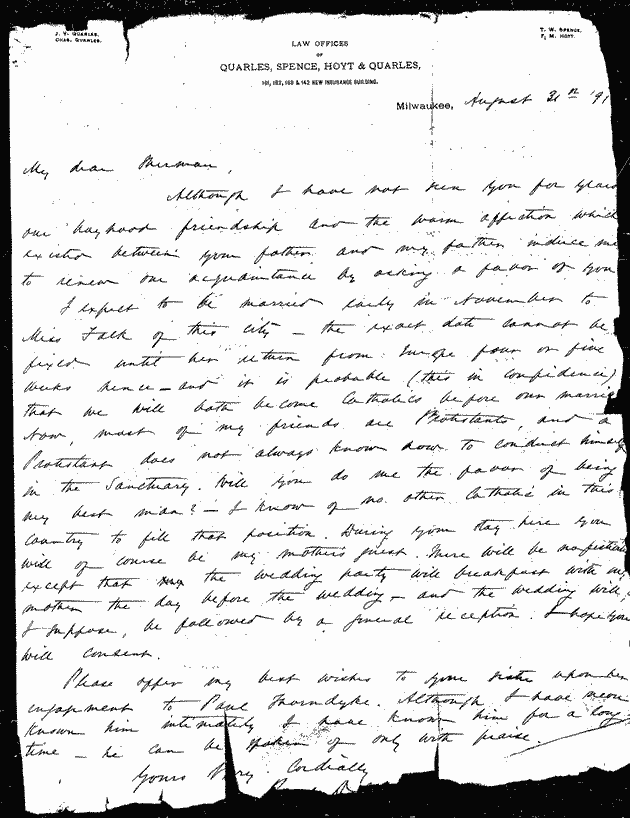 J. V. Quarles.
Chas. Quarles.
T. W. Spence.
F. M. Hoyt.
LAW OFFICES
OF
QUARLES, SPENCE, HOYT & QUARLES,
141, 142 NEW INSURANCE BUILDING.
Milwaukee, August 31 '91
My dear Sherman,
Although I have not seen you for years
our boyhood friendship and the warm affection which
existed between your father and my father induce me
to renew our acquaintance by asking a favor of you
I expect to be married early in November to
Miss Falk of this city – the exact date cannot be
fixed until her return from Europe four or five
weeks hence – and it is probable (this in confidence)
that we will both become Catholics before our marria
Now, most of my friends are Protestants, and a
Protestant does not always know how to conduct himself
in the Sanctuary. Will you do me the favor of being
my best man? – I know of no other Catholic in this
country to fill that position. During your stay here you
will of course be my mother's guest. There will be no festiviti
except that the wedding party will breakfast with my
mother the day before the wedding – and the wedding will,
I suppose, be followed by a general reception. I hope you
will consent.
Please offer my best wishes to your sister upon her
engagement to Paul Thorndyke. Although I have never
known him intimately I have known him for a long
time – he can be spoken of only with praise
Yours Very Cordially